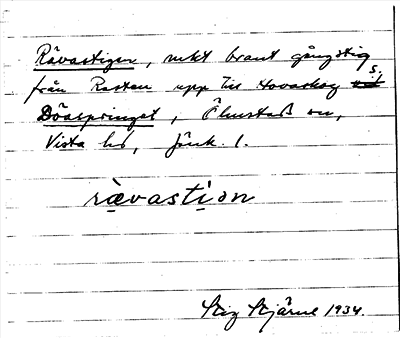 Rävastigen, mkt brant gångstig
från Rasten upp till Hovaskog s.
Döaspringet, Ölmstad sn,
Vista hd, Jönk. l.
rävastiǝn
Stig Stjärne 1934.